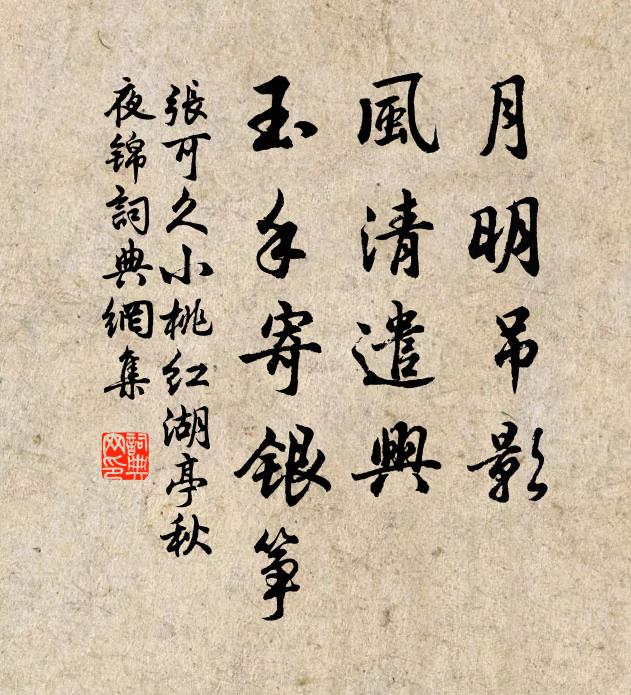 月明吊影
風清遣興
玉手寄銀筝
張可久小桃紅湖亭秋
夜錦詞典網集
詞典
网印